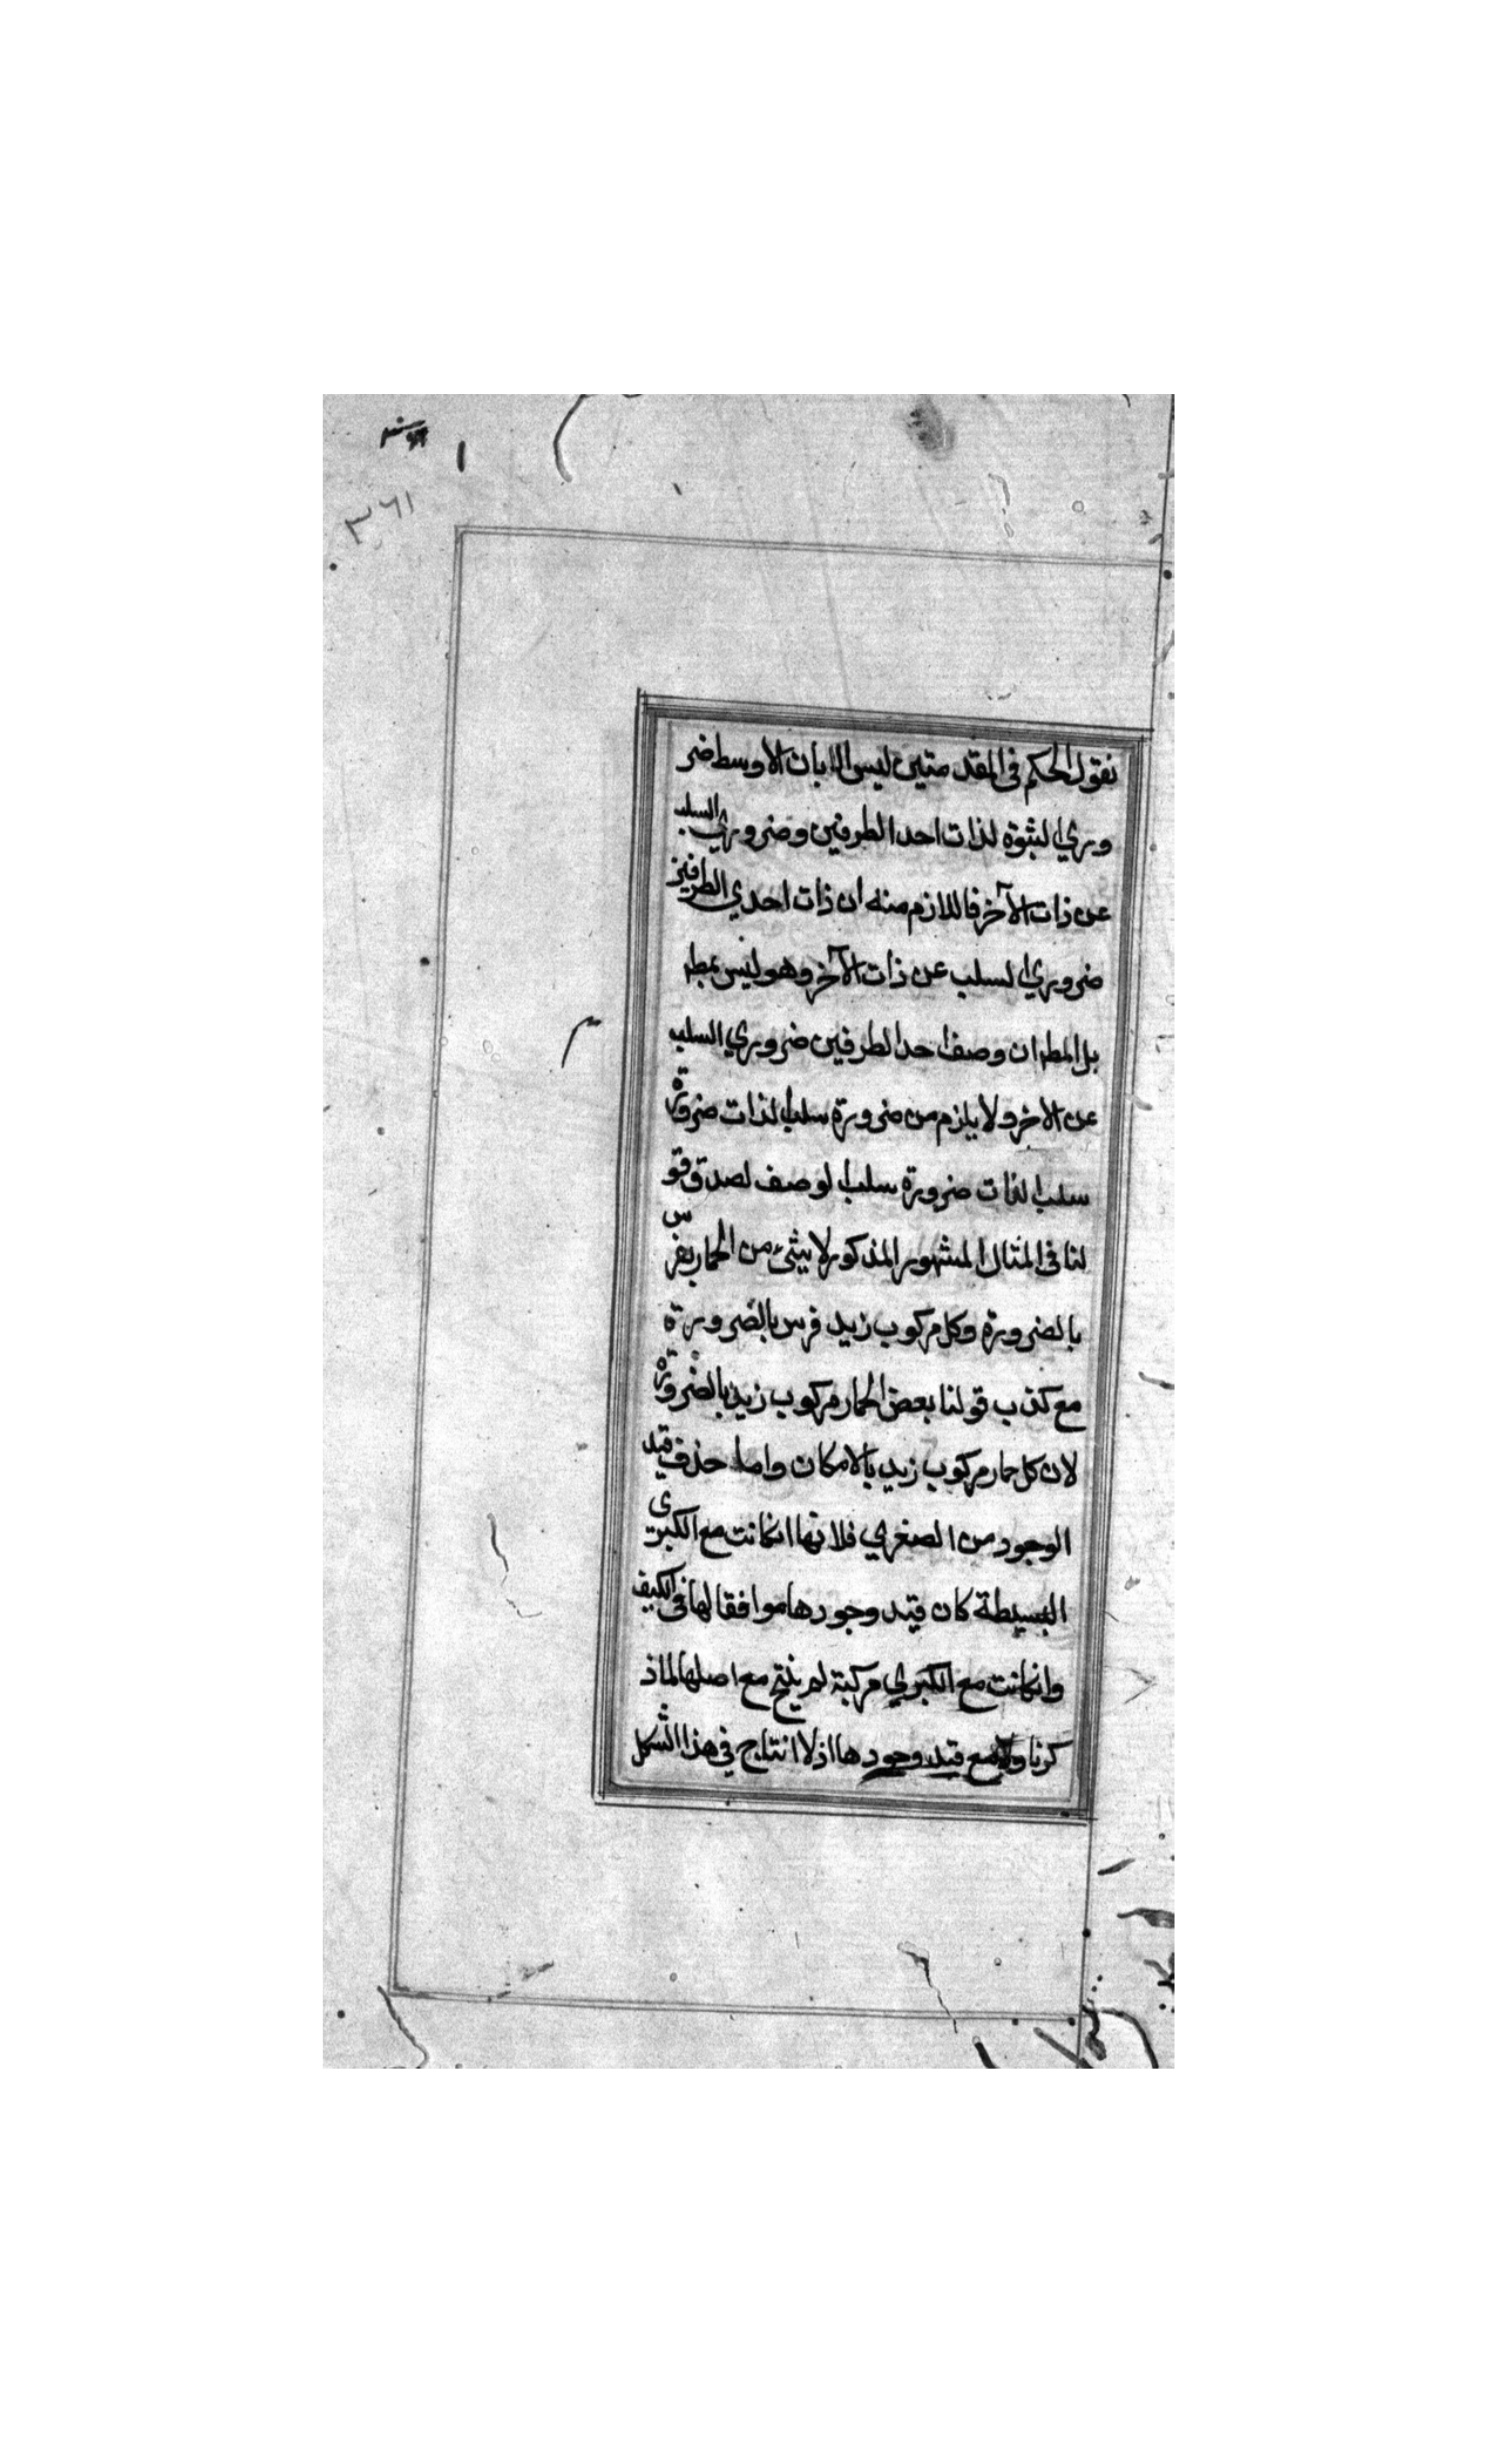 ٣٦١
نقول الحكم فى المقدمتين ليس الا بان الاوسط ضر
وري الثبوة لذات احد الطرفين وضروري السلب
عن ذات الآخر فاللازم منه ان ذات احدي الطرفين
ضروري السلب عن ذات الآخر وهو ليس بمط
بل المط ان وصف احد الطرفين ضروري السلب
عن الاخر ولا يلزم من ضرورة سلب الذات ضرورة
سلب الذات ضرورة سلب الوصف لصدق قو
لنا فى المثال المشهور المذكور لا شئ من الحمار بفرس
بالضرورة وكل مركوب زيد فرس بالضرورة
مع كذب قولنا بعض الحمار مركوب زيد بالضرورة
لان كل حمار مركوب زيد بالامكان واما حذف قيد
الوجود من الصغري فلانها انكانت مع الكبرى
البسيطة كان قيد وجودها موافقا لها فى الكيف
وانكانت مع الكبري مركبة لم ينتج مع اصلها لماذ
كرنا ولا مع قيد وجودها اذ لا انتاج في هذا الشكل